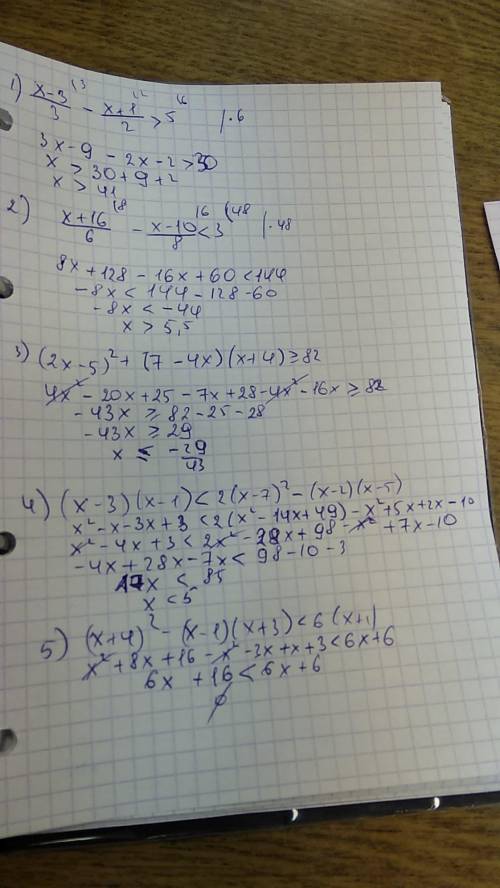 1) (x-3)/3 (3 - (x+1)/2 (2 > 5 (6 /·6
3x-9 - 2x-2 > 30
x > 30+9+2
x > 41
2) (x+16)/6 (8 - (x-10)/8 (6 < 3 (48 |·48
8x+128-16x+60<144
-8x < 144-128-60
-8x < -44
x > 5,5
3) (2x-5)²+(7-4x)(x+4)≥82
4x²-20x+25-7x+28-4x²-16x≥82
-43x ≥ 82-25-28
-43x ≥ 29
x ≤ -29/43
4) (x-3)(x-1)<2(x-7)²-(x-2)(x-5)
x²-x-3x+3<2(x²-14x+49)-x²+5x+2x-10
x²-4x+3<2x²-28x+98-x²+7x-10
-4x+28x-7x<98-10-3
17x < 85
x<5
5) (x+4)²-(x-1)(x+3)<6(x+1)
x²+8x+16-x²-3x+x+3<6x+6
6x +16<6x+6
∅